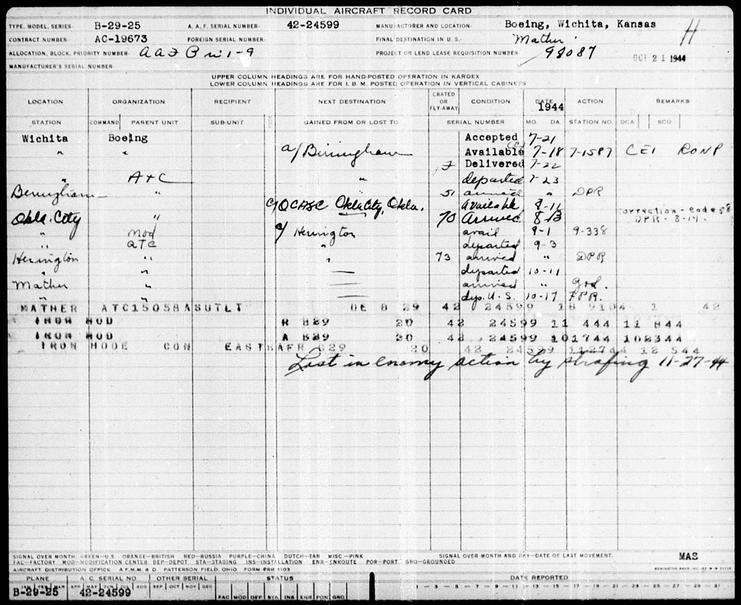 INDIVIDUAL AIRCRAFT RECORD CARD
TYPE, MODEL, SERIES B-29-25 A. A. F. SERIAL NUMBER 42-24599 MANUFACTURER AND LOCATION Boeing, Wichita, Kansas
CONTRACT NUMBER AC-19673 FOREIGN SERIAL NUMBER FINAL DESTINATION IN U.S. Mather H
ALLOCATION, BLOCK, PRIORITY NUMBER AAF 1-9 PROJECT OR LEND LEASE REQUISITION NUMBER 98087 OCT 21 1944
MANUFACTURER'S SERIAL NUMBER
UPPER COLUMN HEADINGS ARE FOR HAND-POSTED OPERATION IN KARDEX
LOWER COLUMN HEADINGS ARE FOR I.B.M. POSTED OPERATION IN VERTICAL CABINETS
LOCATION ORGANIZATION RECIPIENT NEXT DESTINATION CRATED OR FLY-AWAY CONDITION DATE 1944 ACTION REMARKS
STATION COMMAND PARENT UNIT SUB-UNIT GAINED FROM OR LOST TO SERIAL NUMBER MO. DA. STATION NO. DCA
Wichita Boeing Accepted 7-21
" " a/ Birmingham Available 7-18 7-1587 CEI RONP
" Delivered 7-22
" ATC " departed 7-23
Birmingham " 51 arrived " DPR
" c/ OCASC Okla City, Okla. Available 8-11
Okla. City " 70 Arrived 8-13 Correction-Codes 8
DPR - 8-17.
" mod c/ Herington avail 9-1 9-338
" ATC departed 9-3
Herington " " 73 arrived " DPR
" " — departed 10-11
Mather " — arrived " Grd.
" " — dep. U.S. 10-17 FPR.
MATHER ATC15058ASUTLT DE B 29 42 24599 18 9104 1 42
IRON MOD R B29 20 42 24599 11 444 11 844
IRON MOD A B29 20 42 24599 101744 102344
IRON MODE CON EASTRAFR B29 20 42 24599 112744 12 544
Lost in enemy action by strafing 11-27-44
SIGNAL OVER MONTH: GREEN-U.S. ORANGE-BRITISH RED-RUSSIA PURPLE-CHINA DUTCH-TAN MISC.-PINK SIGNAL OVER MONTH AND DAY-DATE OF LAST MOVEMENT.
FAC-FACTORY MOD-MODIFICATION CENTER DEP-DEPOT STA-STAGING INS-INSTALLATION ENR-ENROUTE POR-PORT GRO-GROUNDED MAS
AIRCRAFT DISTRIBUTION OFFICE PATTERSON FIELD, OHIO FORM
PLANE A. C. SERIAL NO OTHER SERIAL STATUS DATE REPORTED
JAN FEB MAR APR MAY JUN JUL AUG SEP OCT NOV DEC 1 3 5 7 9 11 13 15 17 19 21 23 25 27 29 31
B-29-25 42-24599 FAC MOD DEP STA INS ENR POR GRO